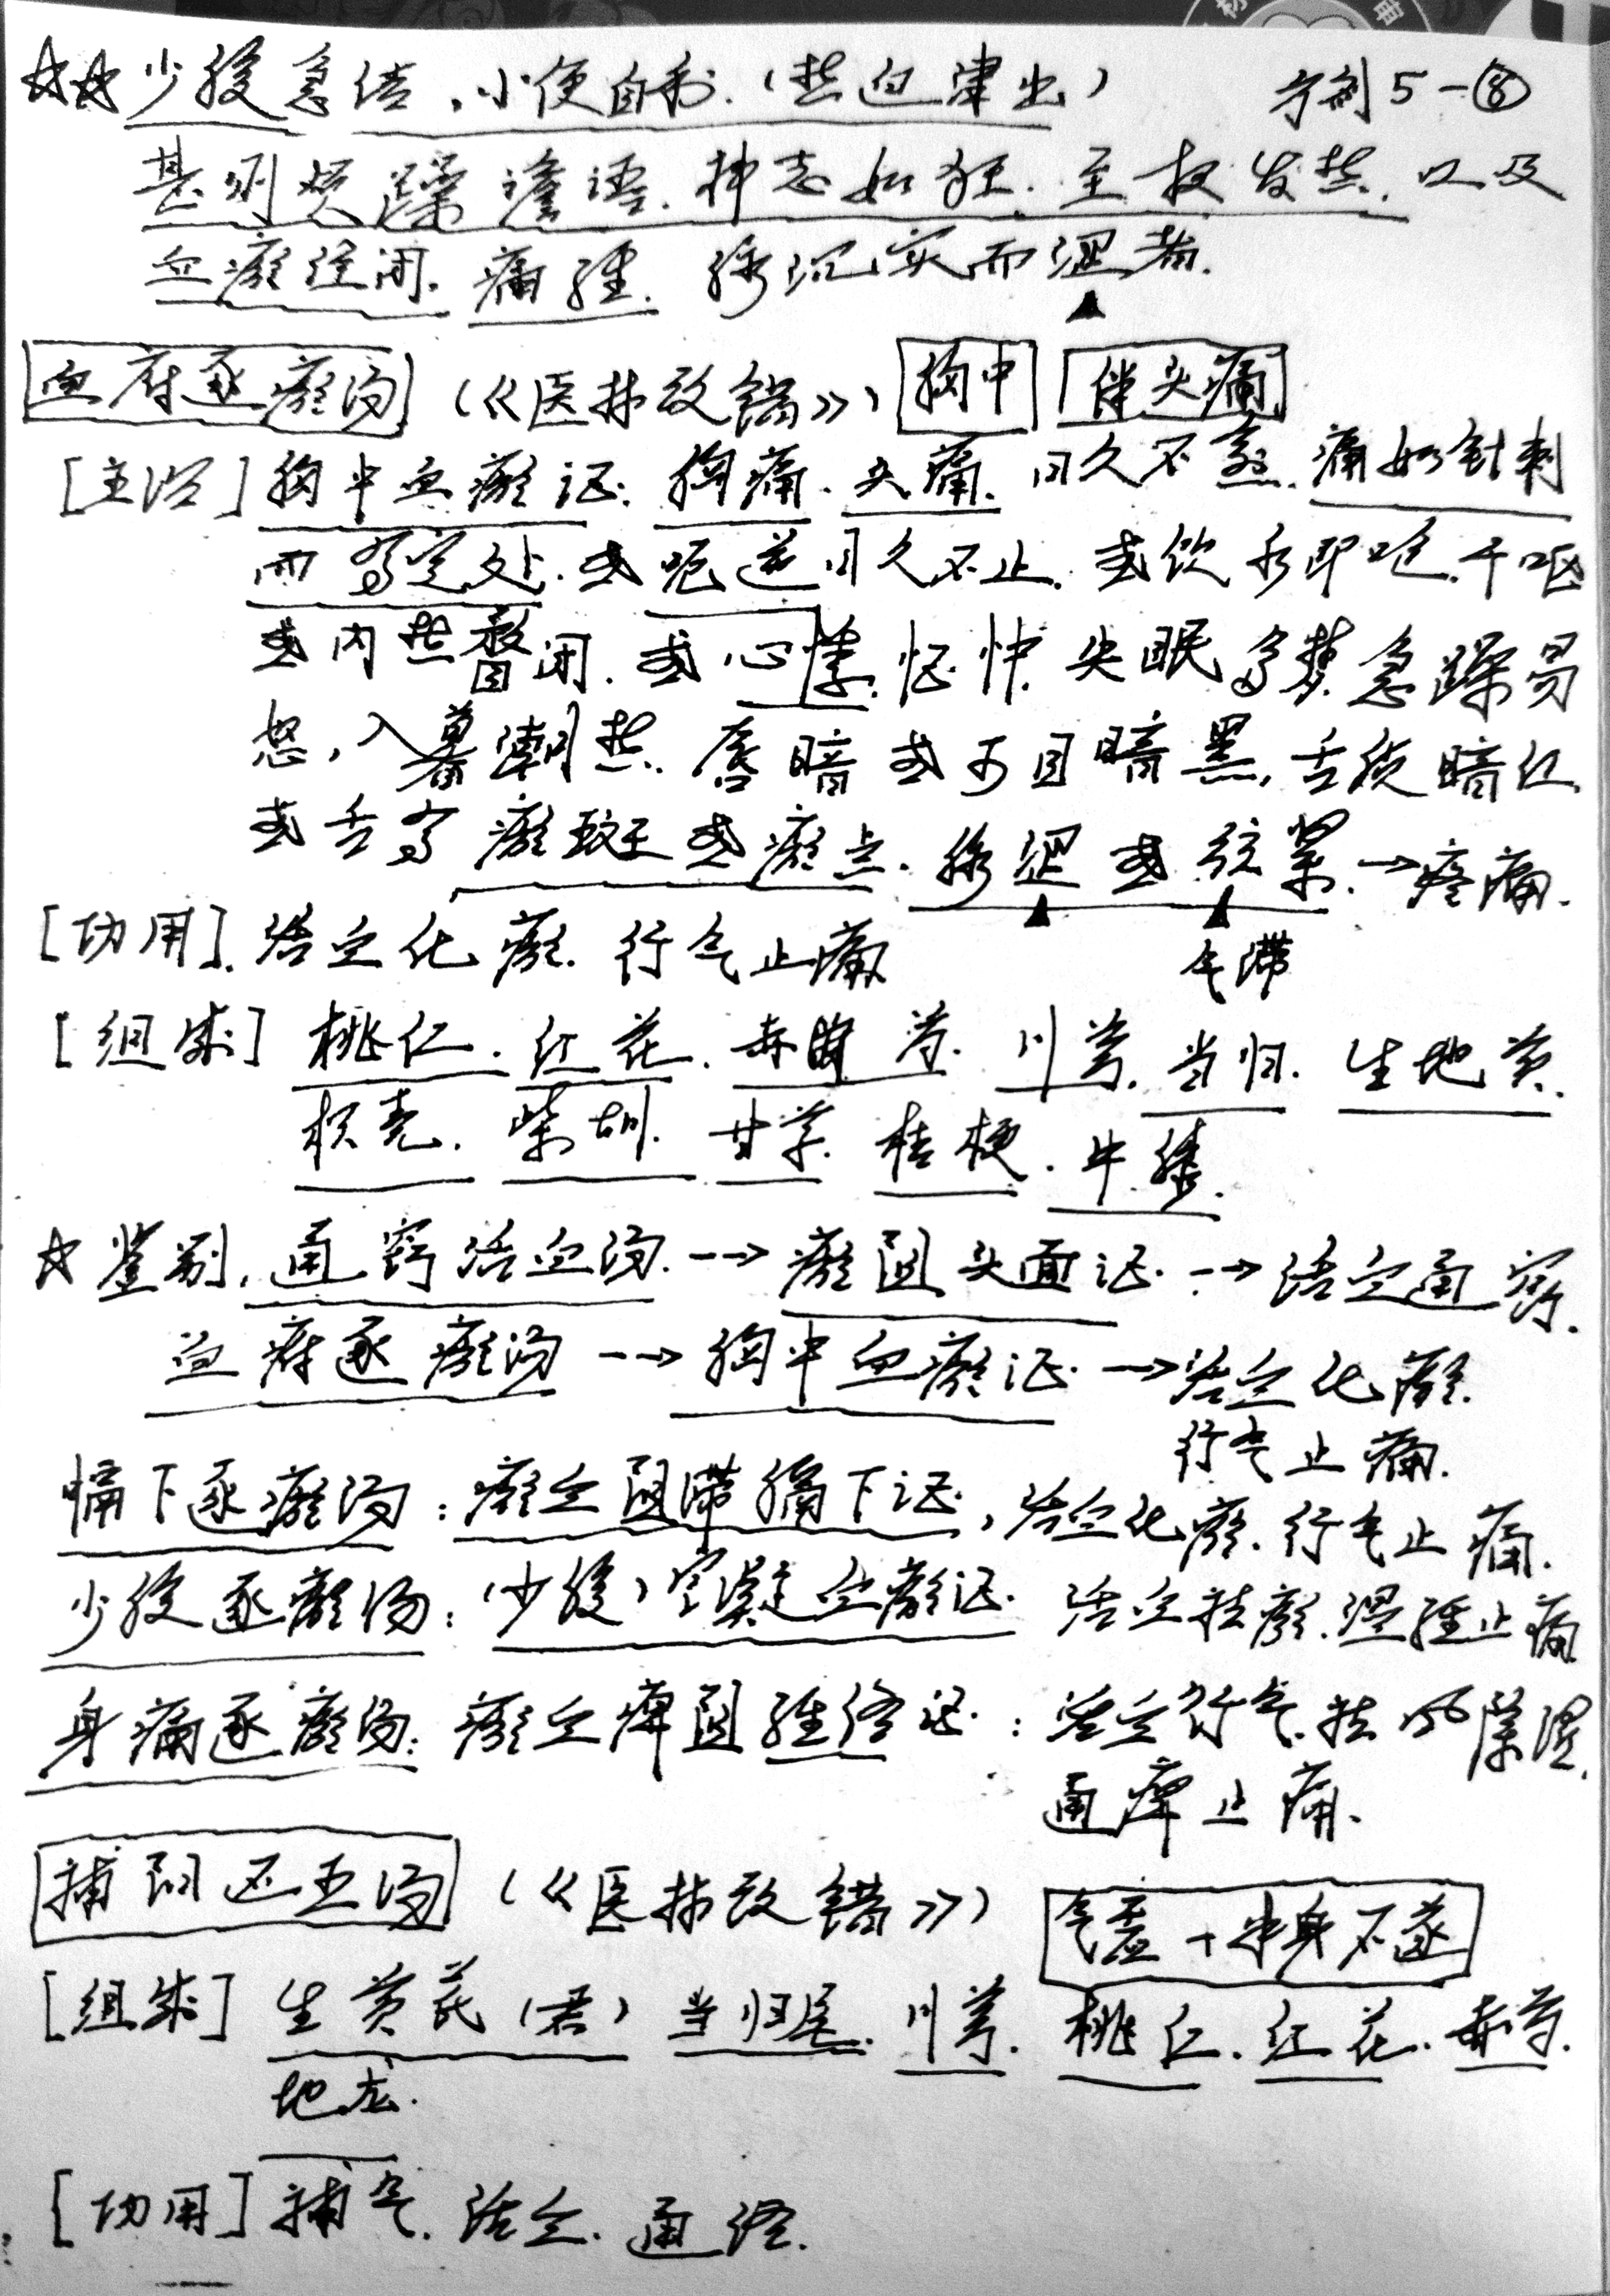 ☆☆少腹急结,小便自利.(热迫津出) 方剂5-⑧
甚则烦躁谵语.神志如狂.至夜发热.以及
血瘀经闭.痛经.脉沉实而涩者.
血府逐瘀汤(《医林改错》)胸中 伴头痛
[主治]胸中血瘀证:胸痛.头痛.日久不愈.痛如针刺
而有定处.或呃逆日久不止.或饮水即呛.干呕
或内热瞀闷.或心悸.怔忡.失眠多梦.急躁易
怒,入暮潮热.唇暗或两目暗黑,舌质暗红.
或舌有瘀斑或瘀点.脉涩或弦紧.→疼痛.
[功用].活血化瘀.行气止痛 气滞
[组成]桃仁.红花.赤芍.川芎.当归.生地黄.
枳壳.柴胡.甘草.桔梗.牛膝.
☆鉴别.通窍活血汤.-→瘀阻头面证.-→活血通窍.
血府逐瘀汤-→胸中血瘀证.-→活血化瘀.
行气止痛.
膈下逐瘀汤:瘀血阻滞膈下证.,活血化瘀.行气止痛.
少腹逐瘀汤:(少腹)寒凝血瘀证.活血祛瘀.温经止痛
身痛逐瘀汤:瘀血痹阻经络证.:活血行气.祛风除湿.
通痹止痛.
补阳还五汤(《医林改错》) 气虚+半身不遂
[组成]生黄芪(君)当归尾.川芎.桃仁.红花.赤芍.
地龙.
[功用]补气.活血.通络.